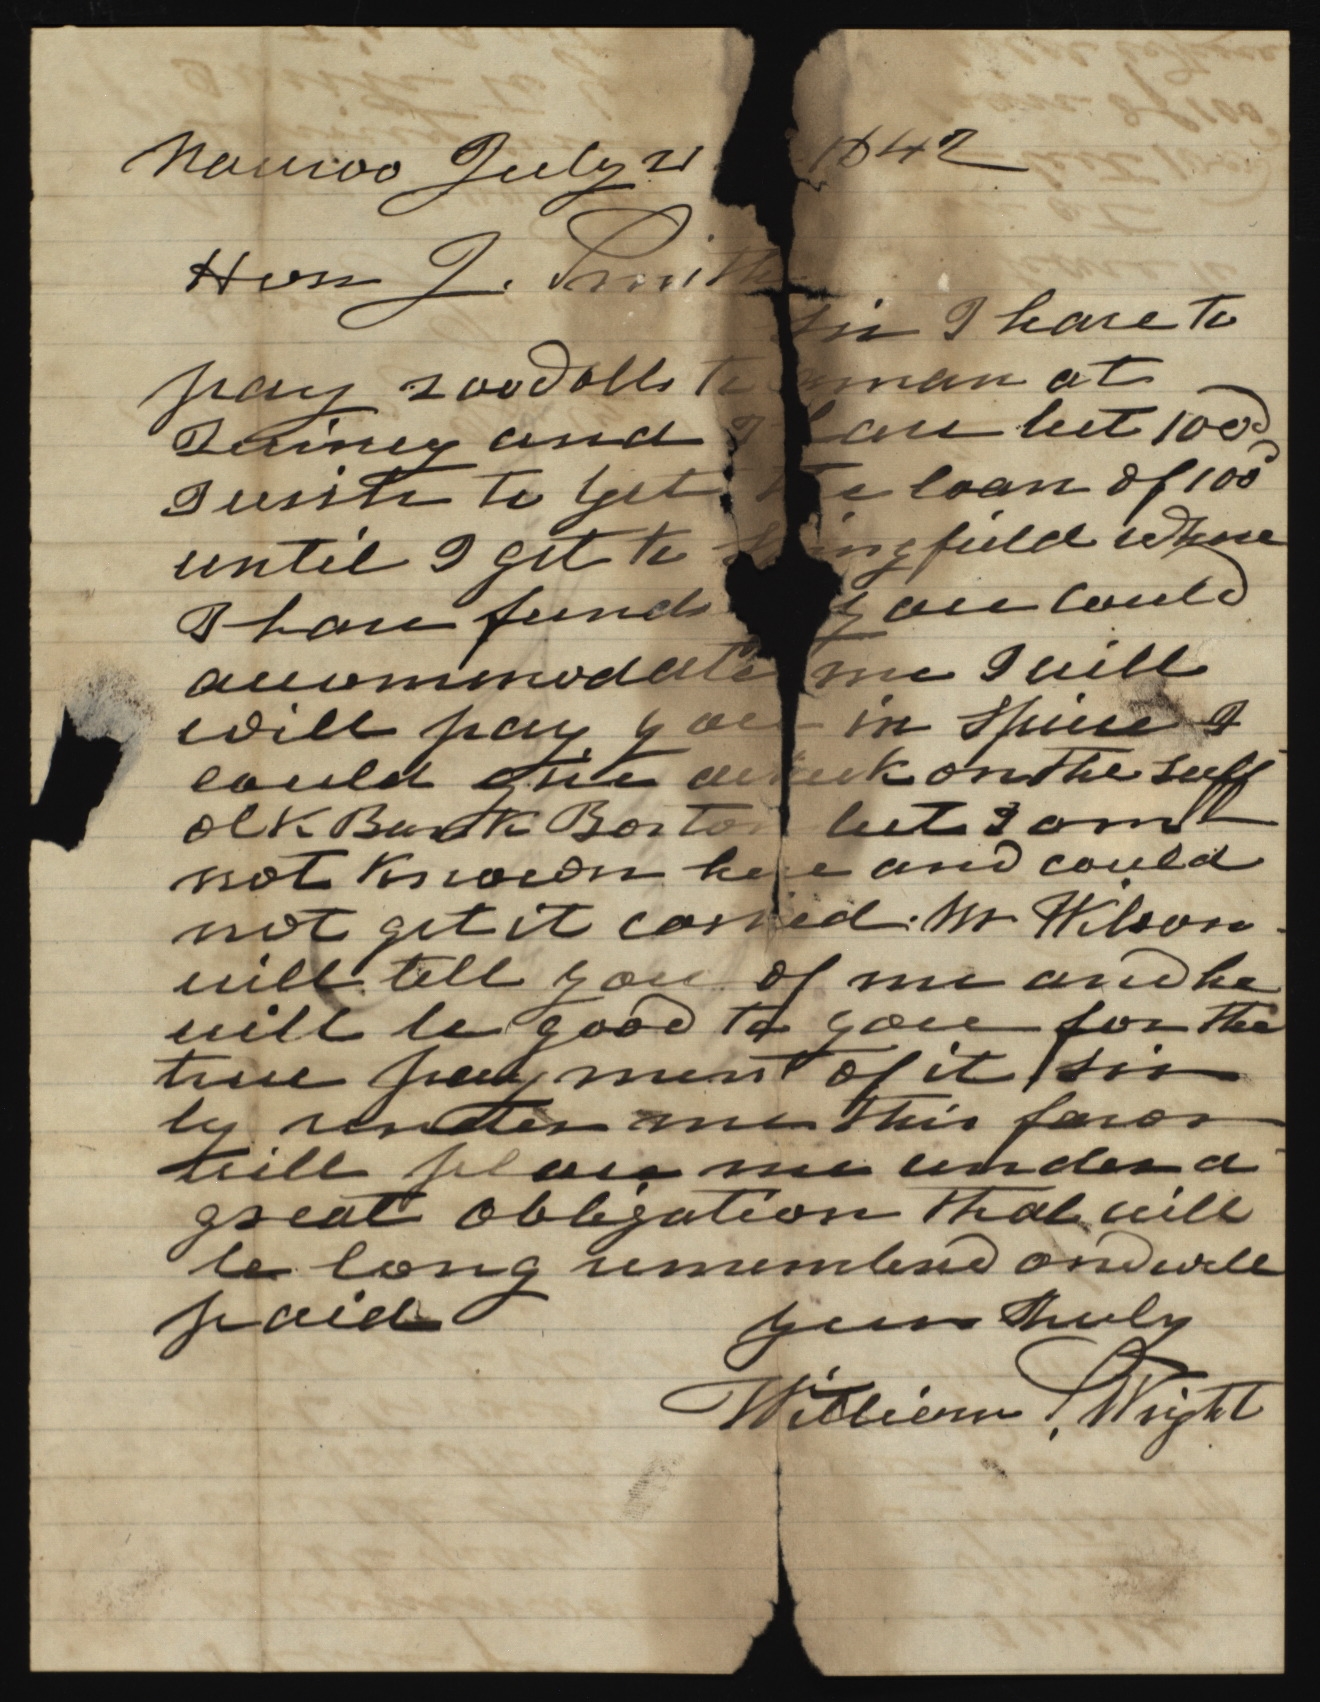 Nauvoo July 21 1842
Hon J. Smith
Sir I have to
pay 200 dolls to a man at
Quincy and I have but 100 d
I wish to get the loan of 100 d
until I get to Springfield where
I have funds you could
accommodate me I will
will pay you in Spiece I
could give a check on the Suff
olk Bank Boston but I am
not Known here and could
not get it cashed. Mr Wilson
will tell you of me and he
will be good to you for the
true payment of it Sir
by render me this favor
will place me under a
great obligation that will
be long rememberd and well
paid
yours Truly
William Wright